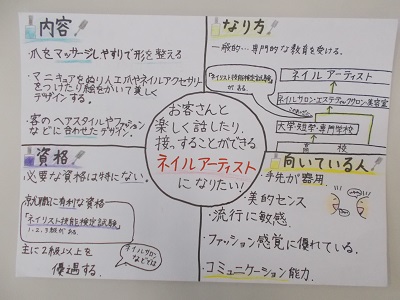 内容
・爪をマッサージしやすりで形を整える
・マニキュアをぬり人工爪やネイルアクセサリー
をつけたり絵をかいて美しく
デザインする。
・客のヘアスタイルやファッション
などに合わせたデザイン。
なり方
一般的…専門的な教育を受ける。
「ネイリスト技能検定試験」
がある。
ネイルアーティスト
ネイルサロン・エステティックサロン・美容室
大学・短学・専門学校
高校
お客さんと
楽しく話したり、
接することができる
ネイルアーティスト
になりたい!
資格
必要な資格は特にない。
就職に有利な資格
「ネイリスト技能検定試験」
1.2.3級がある
主に2級以上を
優遇する。
ネイルサロン
などでは
向いている人
・手先が器用
・美的センス
・流行に敏感
・ファッション感覚に優れている。
・コミュニケーション能力